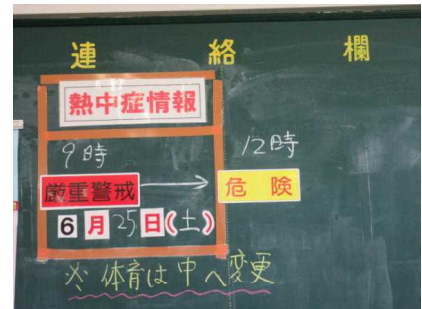 連絡欄
熱中症情報
9時 12時
厳重警戒 → 危険
6月25日(土)
※ 体育は中へ変更